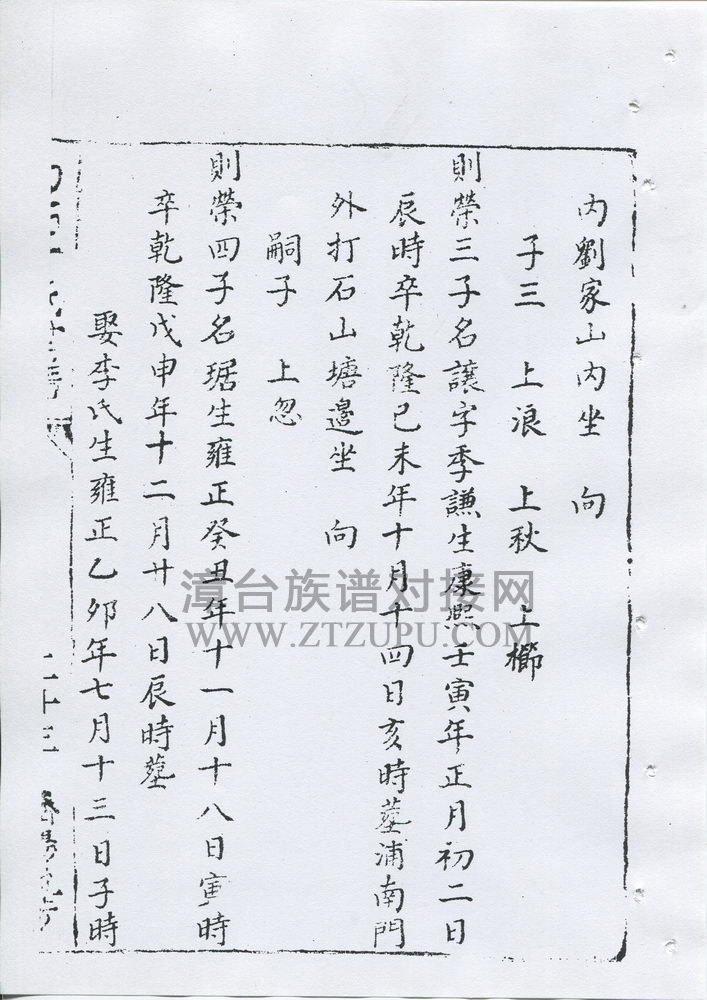 內劉家山內坐　向
子三　上浪　上秋　上櫛
則榮三子名讓字季謙生康熙壬寅年正月初二日
辰時卒乾隆己未年十月十四日亥時墓浦南門
外打石山塘邊坐　向
嗣子　上忽
則榮四子名琚生雍正癸丑年十一月十八日寅時
卒乾隆戊申年十二月廿八日辰時墓
娶李氏生雍正乙卯年七月十三日子時
二十三
漳台族谱对接网
WWW.ZTZUPU.COM